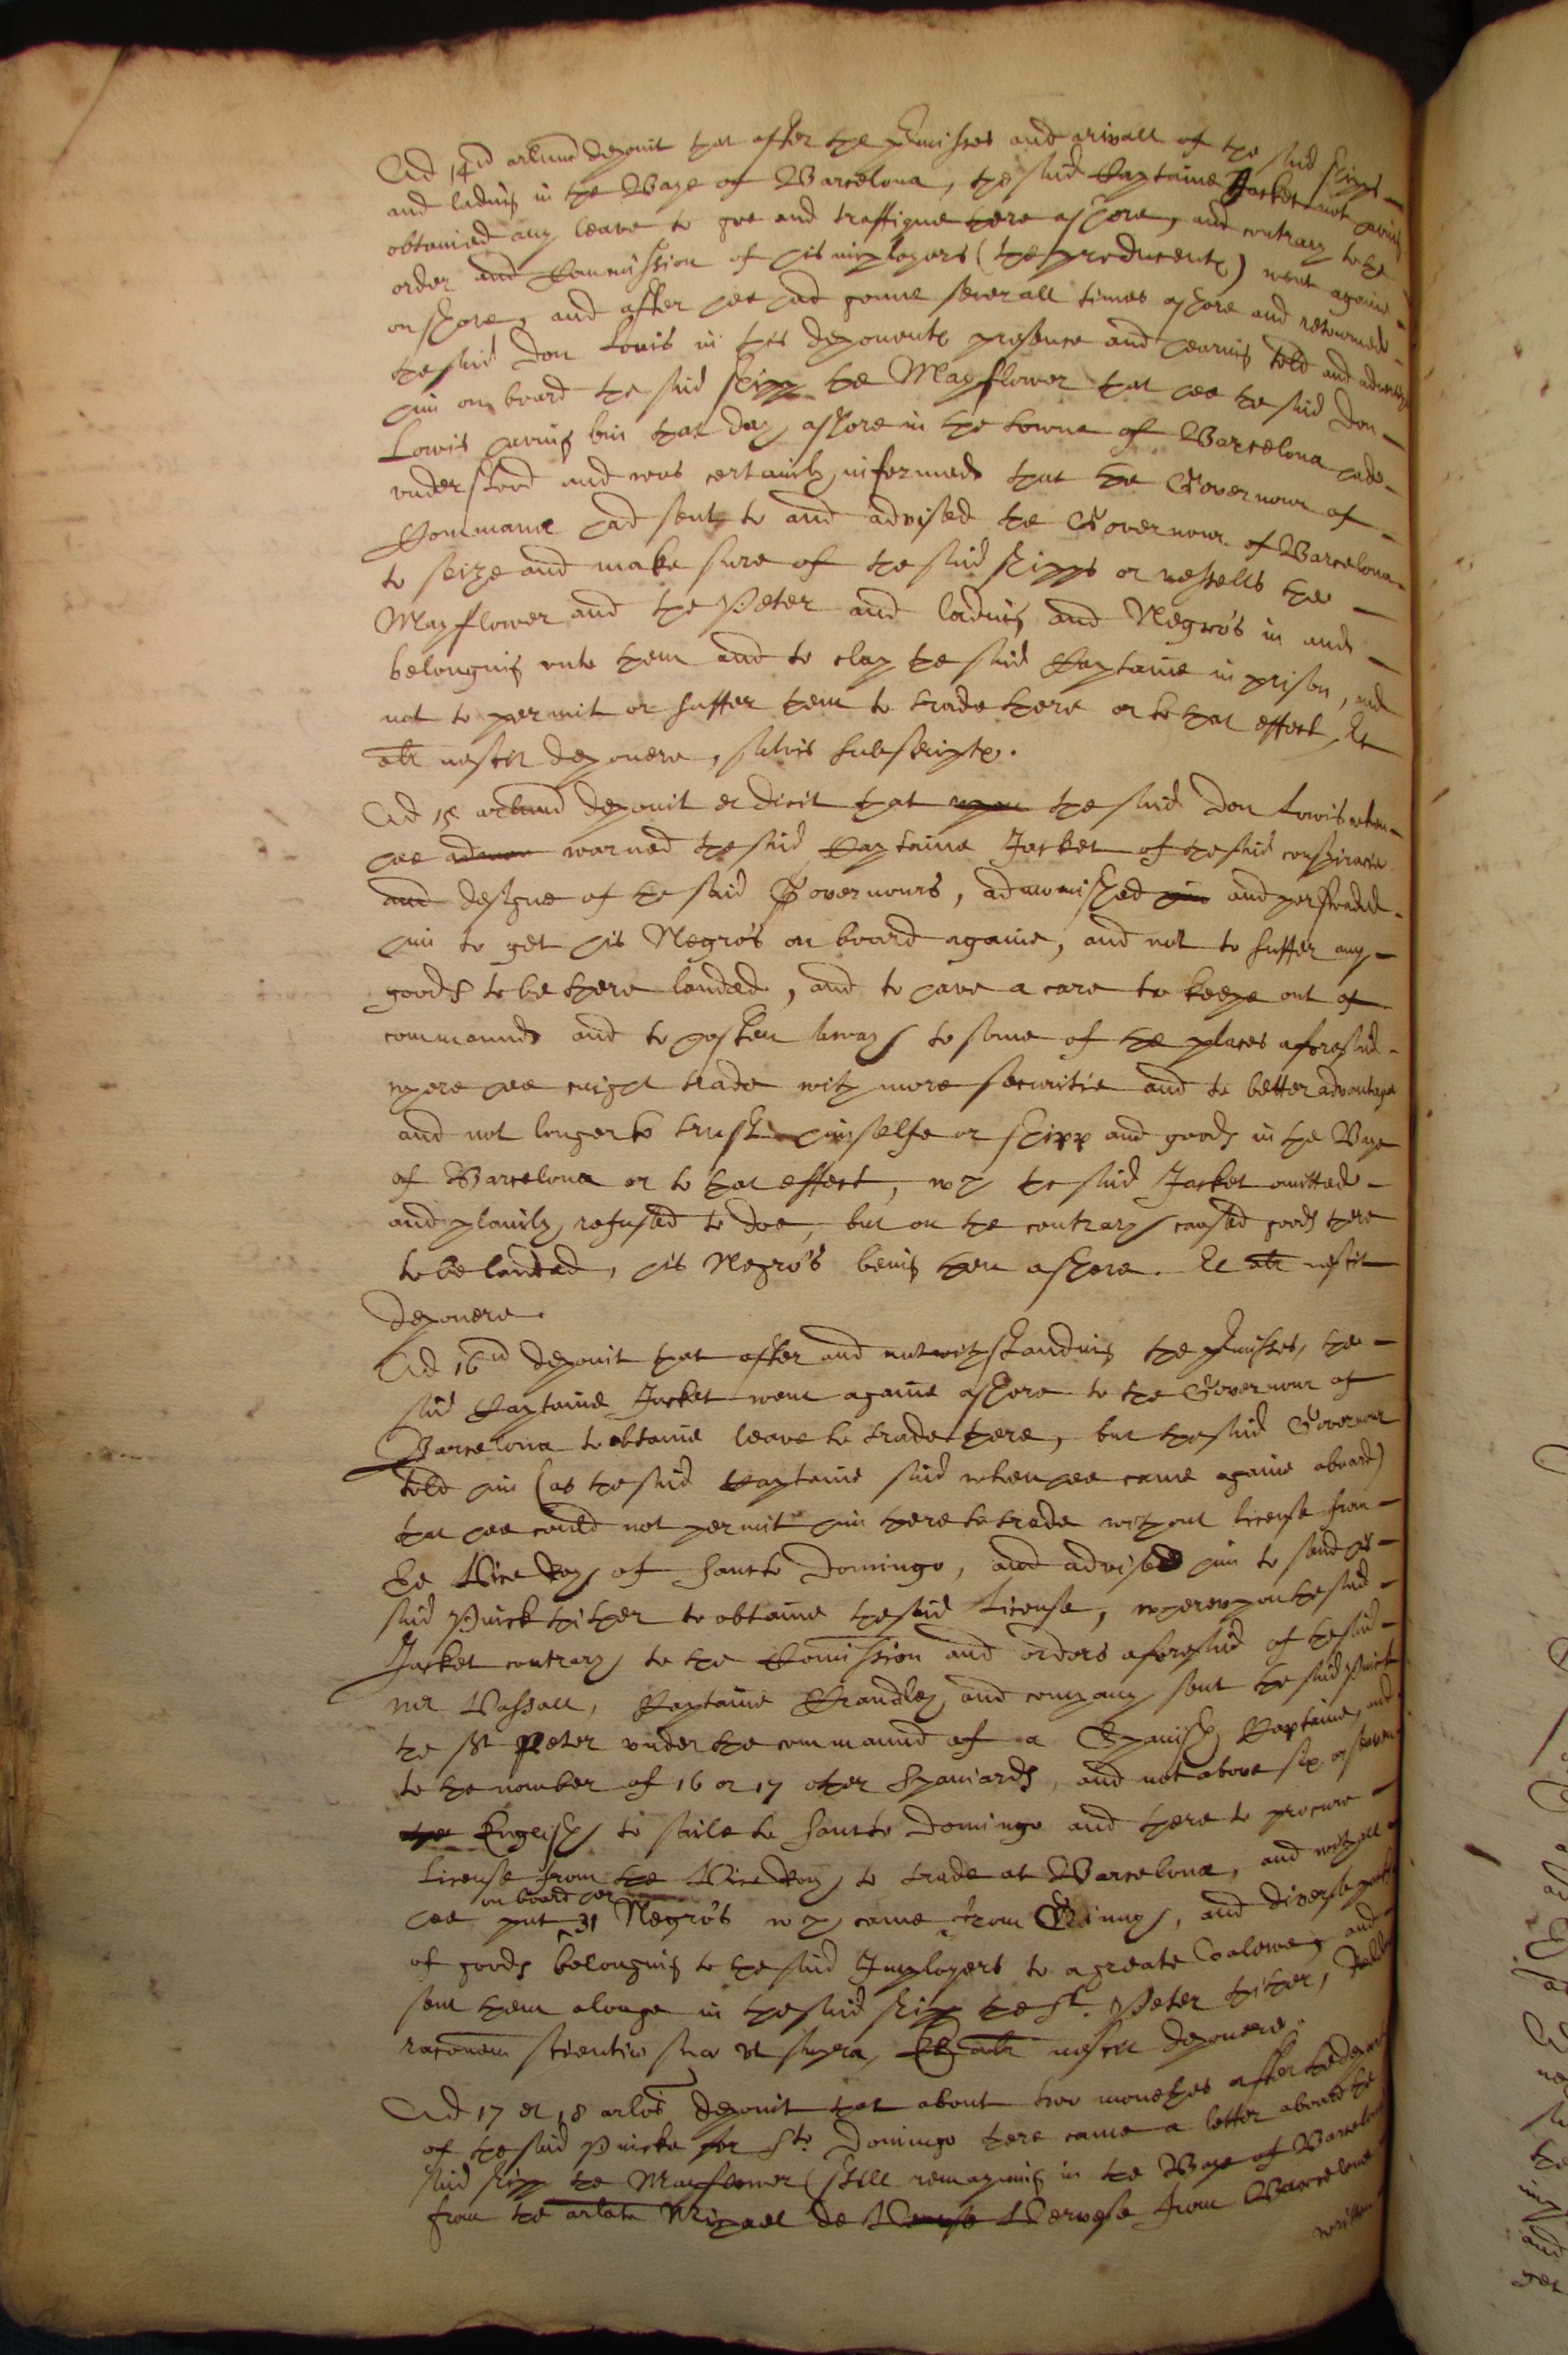 Ad 14ũ arlum deponit that after the premisses and arivall of the said shipps
and ladeing in the Baye of Barcelona, the said Captaine Jacket not having
obtained any leave to goe and traffique there ashore, and contrary to the
order and Commission of his imployers (the producents) went againe
on shore, and after hee had gonne severall times ashore and retourned
the said Don Louis in this deponents presence and hearing told and advertized
him on board the said shipp the Mayflower that hee the said Don
Lowis having bin that day ashore in the towne of Barcelona had
understood and was certainly informed that the Governour of
Commana had sent to and advised the Governour of Barcelona
to seize and make sure of the said shipps or vessells the
Mayflower and the Peter and ladeing and Negro's in and
belonging unto them and to clap the said Captaine in prison, and
not to permit or suffer them to trade there or to that effect, Et
alr nescit deponere, salvis subscriptis.
Ad 15 arlum deponit et dicit that upon the said Don Lowis when
hee warned the said Captaine Jacket of the said conspiracie
and designe of the said Governours, admonished him and perswaded
him to get his Negro's on board againe, and not to suffer any
goods to be there landed, and to have a care to keepe out of
command and to hasten away to some of the places aforesaid
where hee might trade with more securitie and to better advantage
and not longer to trust himselfe or shipp and goods in the Baye
of Barcelona or to that effect, wch the said Jacket omitted
and plainly refused to doe, but on the contrary caused goods there
to be landed, his Negro's being then ashore. Et alr nescit
deponere.
Ad 16ũ deponit that after and notwithstanding the premisses, the
said Captaine Jacket went againe ashore to the Governour of
Barcelona to obtaine leave to trade there, but the said Governour
told him (as the said Captaine said when hee came againe aboard)
that hee could not permit him there to trade without license from
the Vice Roy of Sancto Domingo, and advised him to send his
said Pinck thither to obtaine the said license, whereupon the said
Jacket contrary to the Comission and orders aforesaid of the said
mr Vassall, Captaine Crandley and company sent the said Pinck
the St Peter under the command of a Spanish Captaine, and
to the number of 16 or 17 other Spaniards, and not above six or seaven
the English to saile to Sancto Domingo and there to procure
license from the Vice Roy to trade at Barcelona, and withall
on board her
hee put 31 Negro's wch came from Ginney, and diverse parcells
of goods belonging to the said Imployers to a greate valewe, and
sent them alonge in the said shipp the St. Peter thither, Reddens
raconem scientie sue ut supra, Et alr nescit deponere.
Ad 17 et 18 arlos deponit that about two moneths after the departure
of the said Pincke for Sto Domingo there came a letter aboard the
said shipp the Mayflower (still remayning in the Baye of Barcelona
from the arlate Michael de Vervese from Barcelona
written